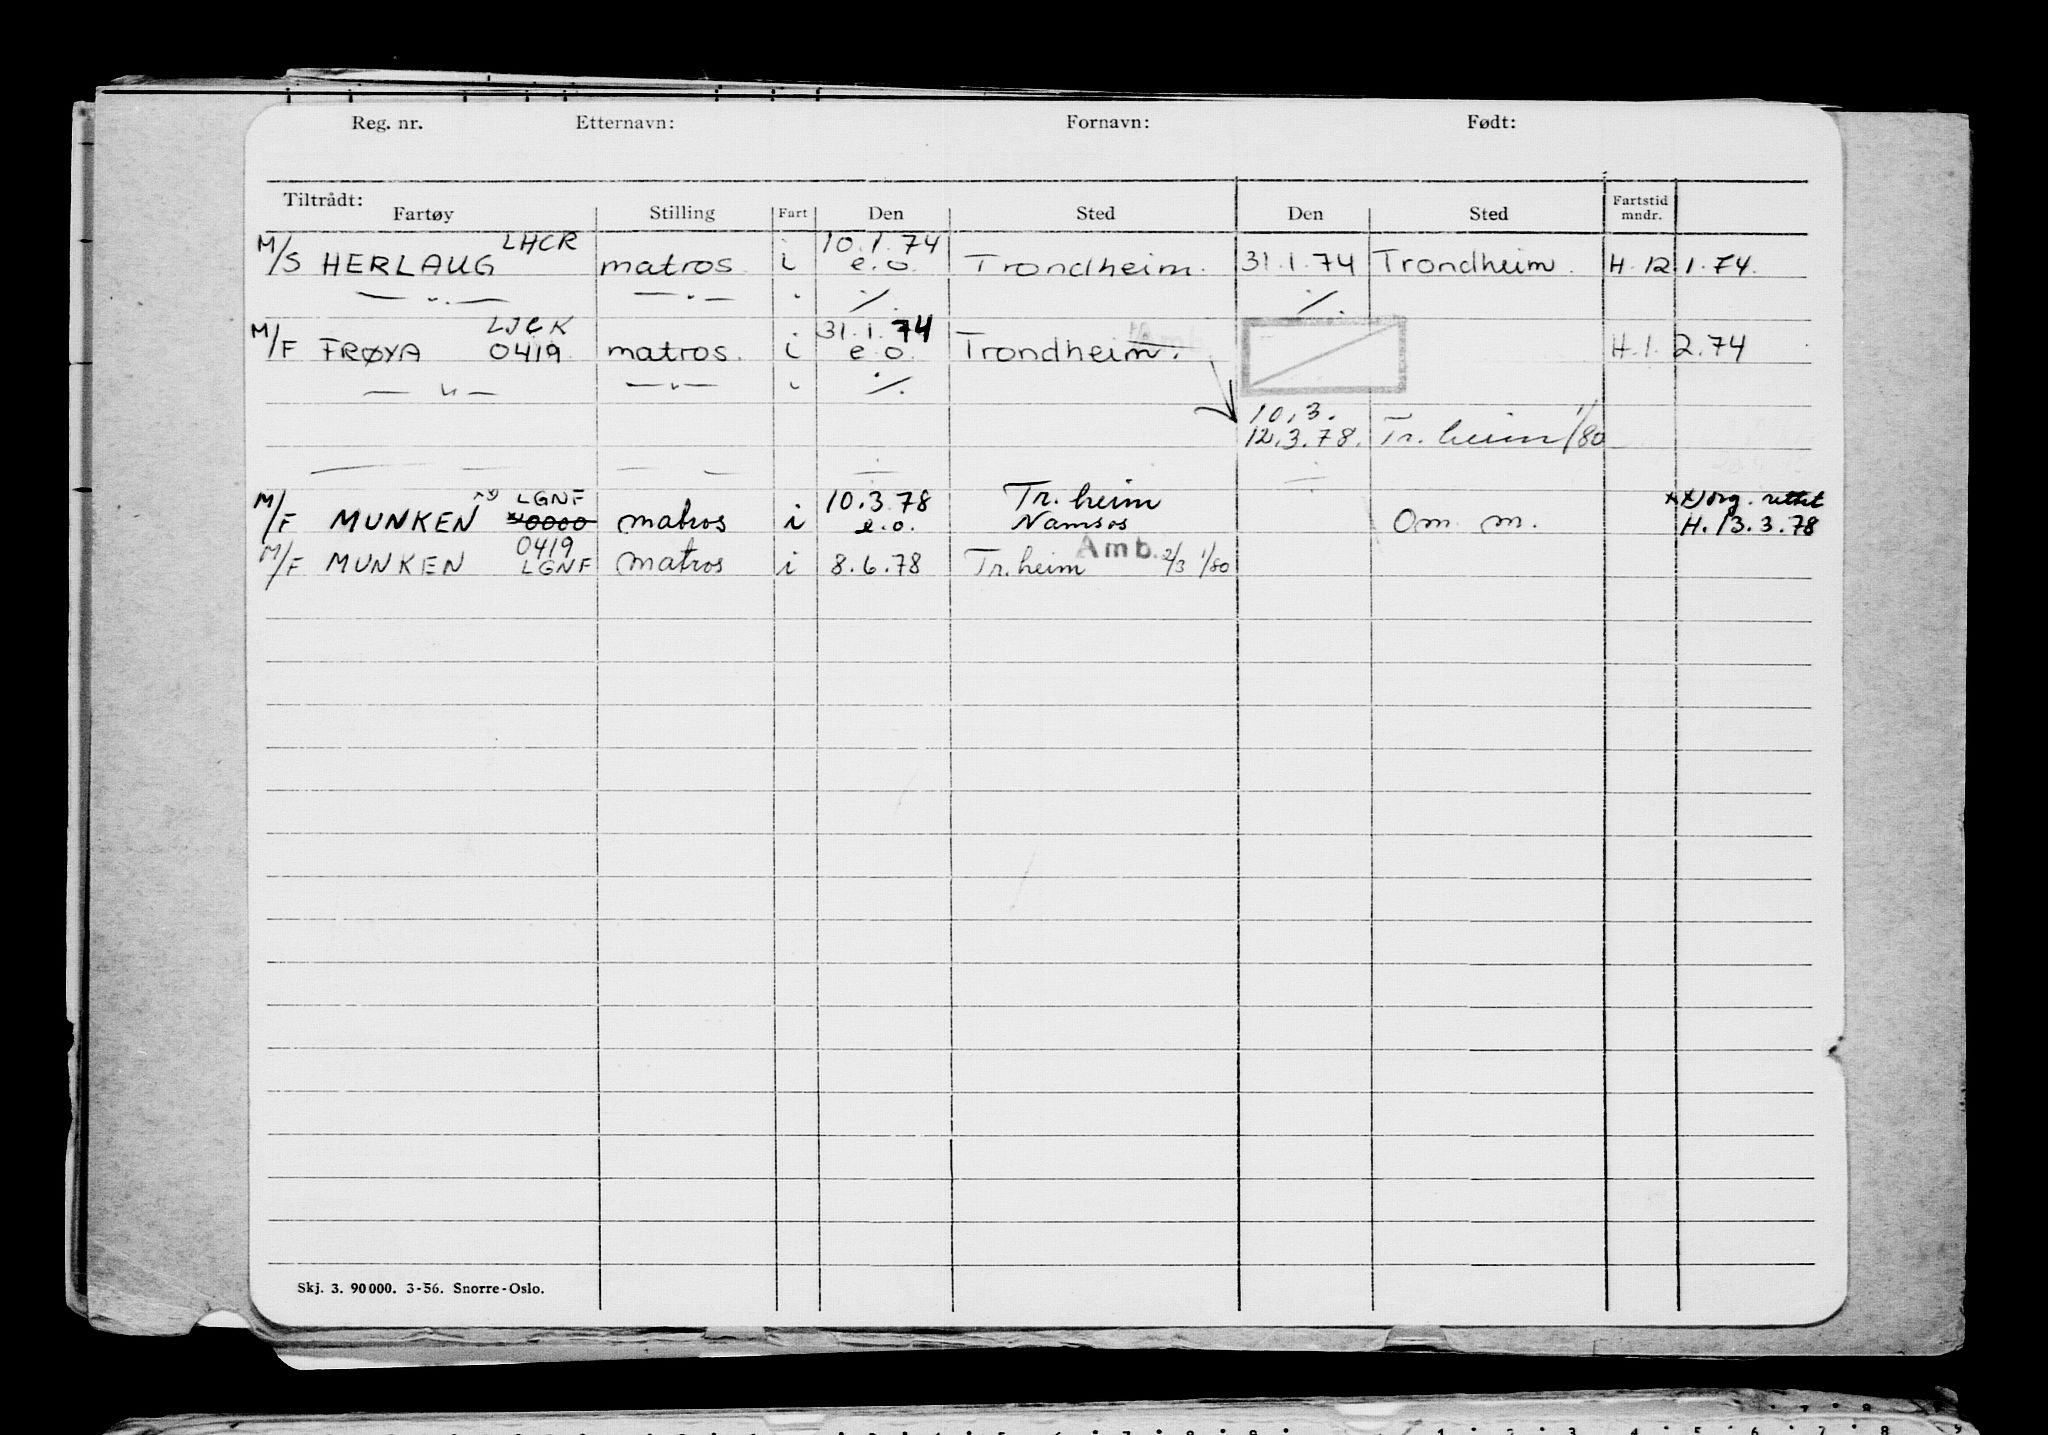 Reg. nr. Etternavn: Fornavn: Født:
Tiltrådt:
Fartøy Stilling Fart Den Sted Den Sted Fartstid mndr.
LHCR 10.1.74
M/S HERLAUG matros i e.o. Trondheim. 31.1.74 Trondheim. H. 12 1.74.
— " — — " — " ·/. ·/.
LJCK 31.1.74
M/F FRØYA 0419 matros. i e.o. Trondheim. H.1. 2.74
— " — — " — " ·/.
10.3.
12.3.78. Tr.heim 1/80
LGNF 10.3.78 Tr.heim x) org. rettet
M/F MUNKEN x) 0000 matros i e.o. Namsos Om. m. H.13.3.78
0419 Amb.
M/F MUNKEN LGNF matros i 8.6.78 Tr.heim 2/3 1/80
Skj. 3. 90000. 3-56. Snorre-Oslo.